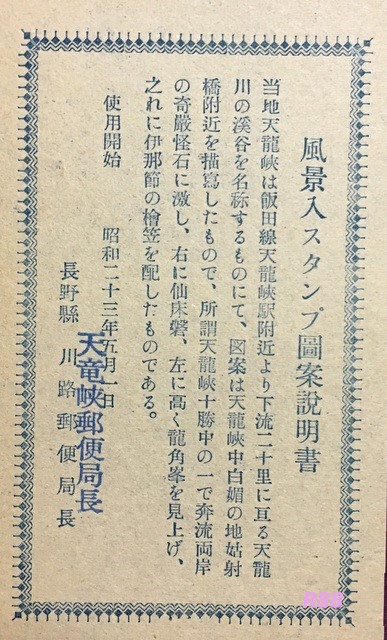 風景入スタンプ圖案說明書
当地天龍峽は飯田線天龍峽駅附近より下流二十里に亙る天龍
川の溪谷を名称するものにて、図案は天龍峽中白媚の地姑射
橋附近を描寫したもので、所謂天龍峽十勝中の一で奔流両岸
の奇巖怪石に激し、右に仙床磐、左に高く龍角峯を見上げ、
之れに伊那節の檜笠を配したものである。
使用開始 昭和二十三年五月一日
長野縣 川路郵便局長
天竜峡郵便局長